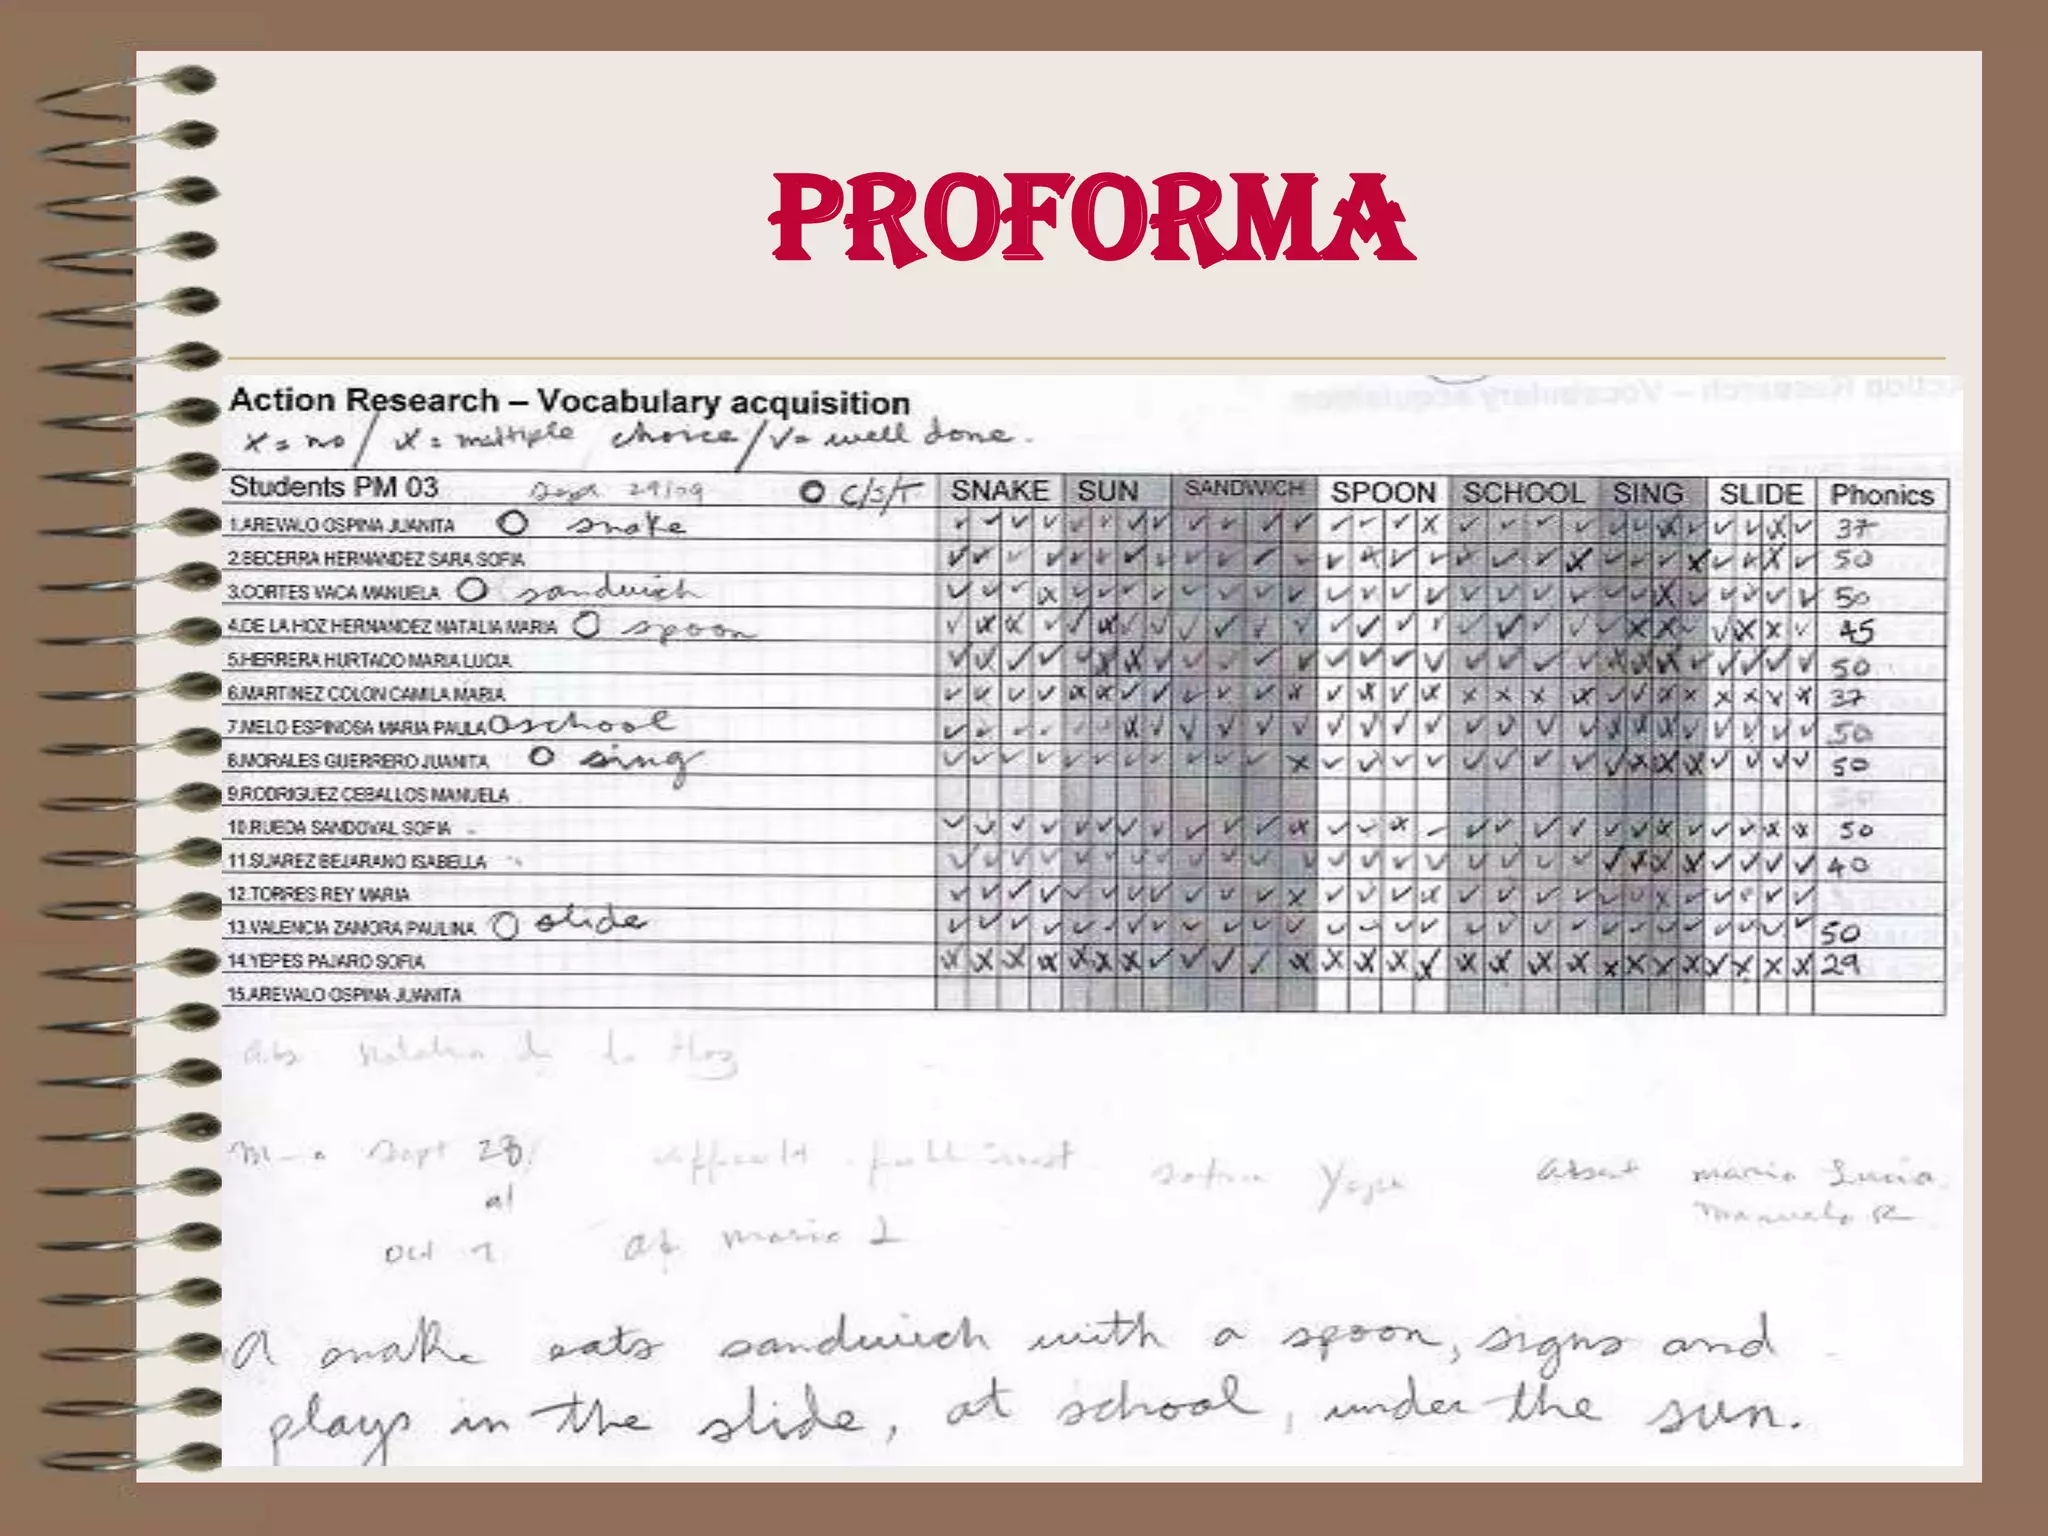 PROFORMA
Action Research – Vocabulary acquisition
x = no / x = multiple choice / v = well done.
Students PM 03 Sept 29/09 O C/S/T. SNAKE SUN SANDWICH SPOON SCHOOL SING SLIDE Phonics
1.AREVALO OSPINA JUANITA O snake 37
2.BECERRA HERNANDEZ SARA SOFIA 50
3.CORTES VACA MANUELA O sandwich 50
4.DE LA HOZ HERNANDEZ NATALIA MARIA O spoon 45
5.HERRERA HURTADO MARIA LUCIA 50
6.MARTINEZ COLON CAMILA MARIA 37
7.MELO ESPINOSA MARIA PAULA O school 50
8.MORALES GUERRERO JUANITA O sing 50
9.RODRIGUEZ CEBALLOS MANUELA
10.RUEDA SANDOVAL SOFIA 50
11.SUAREZ BEJARANO ISABELLA 40
12.TORRES REY MARIA
13.VALENCIA ZAMORA PAULINA O slide 50
14.YEPES PAJARO SOFIA 29
15.AREVALO OSPINA JUANITA
Abs Natalia de la Hoz
Sept 28/ Sofia Yepes Absent Maria Lucia.
al Manuela R.
Oct Maria L
A snake eats sandwich with a spoon, signs and
plays in the slide, at school, under the sun.